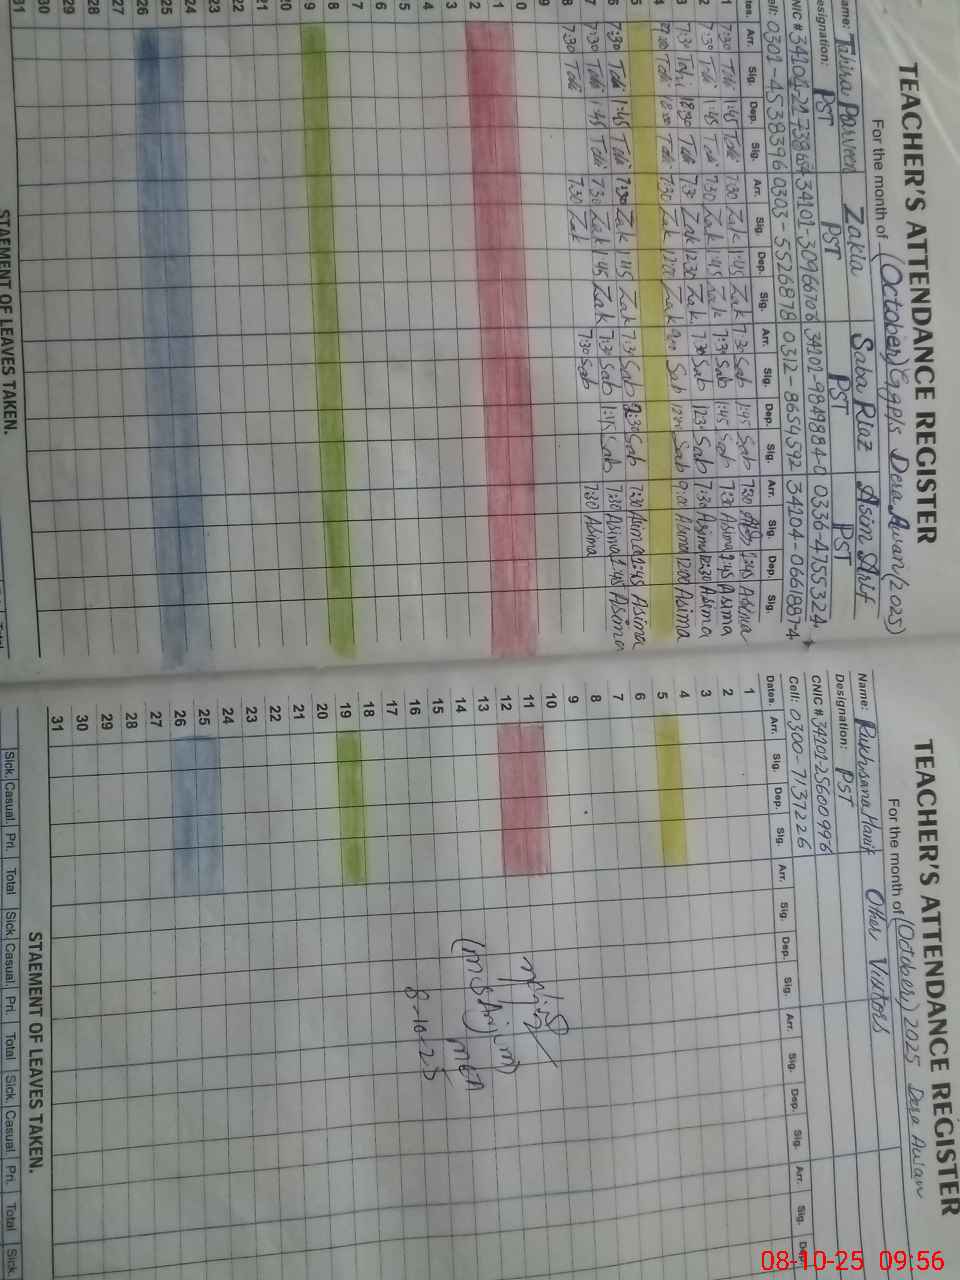 TEACHER'S ATTENDANCE REGISTER
For the month of (October) Ggp/s Dera Awan/2025)
Name: Tahira Parveen Zakia Saba Riaz Asim Arif
Designation: PST PST PST PST
Cell: 0301-4538396 0303-5526878 0312-8654592 34104-0661887-4
Dates. Arr. Sig. Dep. Sig. Arr. Sig. Dep. Sig. Arr. Sig. Dep. Sig. Arr. Sig. Dep. Sig.
1 7:30 Tahi 1:45 Tahi 7:30 Zak 1:45 Zak 7:30 Sab 1:45 Sab 7:30 1:45 Asima
2 7:30 Tahi 1:45 Tahi 7:30 Zak 1:45 Zak 7:30 Sab 1:45 Sab 7:30 Asima 1:45 Asima
3 7:30 Tahi Tahi 7:30 Zak 12:30 Zak 7:30 Sab 12:30 Sab 7:30 Asima 12:30 Asima
4 Tahi Tahi 7:30 Zak 12:00 Zak 9:00 Sab 12:00 Sab 9:00 Asima 12:00 Asima
5
6 7:30 Tahi 1:45 Tahi 7:30 Zak 1:45 Zak 7:30 Sab Sab 7:30 Asima 1:45 Asima
7 7:30 Tahi 1:45 Tahi 7:30 Zak 1:45 Zak 7:30 Sab 1:45 Sab 7:30 Asima 1:45 Asima
8 7:30 Tahi 7:30 Zak 7:30 Sab 7:30 Asima
9
0
1
2
3
4
5
6
7
8
9
20
21
22
23
24
25
26
27
28
29
30
31
STAEMENT OF LEAVES TAKEN.
TEACHER'S ATTENDANCE REGISTER
For the month of (October) 2025 Dera Awan
Name: Rukhsana Hanif Other Visitors
Designation: PST
CNIC # 34101-25600996
Cell: 0300-7137226
Dates. Arr. Sig. Dep. Sig. Arr. Sig. Dep. Sig. Arr. Sig. Dep. Sig. Arr. Sig. Dep.
1
2
3
4
5
6
7
8
9
10
11
12
13
14
15
16
17
18
19
20
21
22
23
24
25
26
27
28
29
30
31
MEA
8-10-25
STAEMENT OF LEAVES TAKEN.
Sick. Casual. Pri. Total Sick. Casual. Pri. Total Sick. Casual. Pri. Total Sick.
08-10-25 09:56